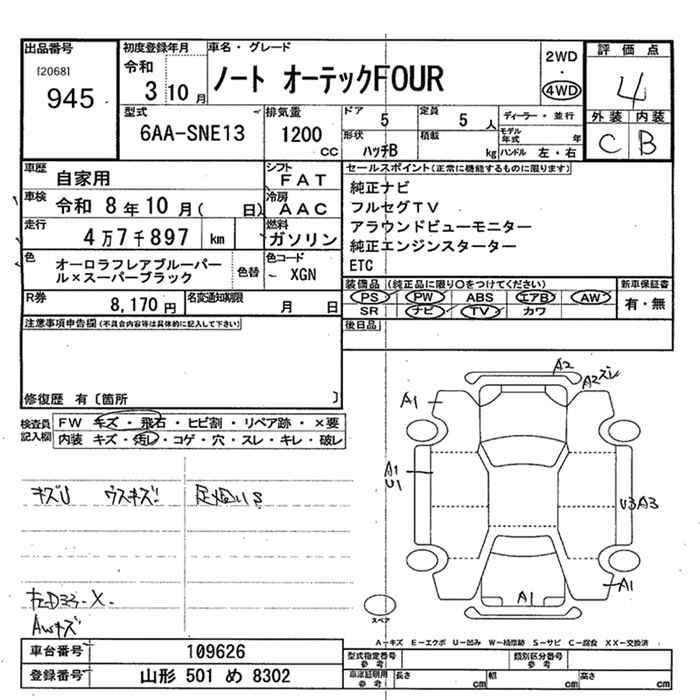 出品番号
[2068]
945
初度登録年月
令和
3 10 月
車名・グレード
ノート オーテックFOUR
2WD
・
4WD
評価点
4
外装 内装
C B
型式
6AA-SNE13
排気量
1200
CC
ドア
5
定員
5 人
形状
ハッチB
積載
kg
ディーラー・並行
モデル年式 年
ハンドル 左・右
車歴
自家用
シフト
FAT
車検
令和 8年10月( 日)
冷房
AAC
走行
4万7千897 km
燃料
ガソリン
色
オーロラフレアブルーパール×スーパーブラック
色替
色コード
XGN
R券
8,170円
名変通知期限
月 日
セールスポイント(正常に機能するものに限ります)
純正ナビ
フルセグTV
アラウンドビューモニター
純正エンジンスターター
ETC
装備品(純正品に限り○をつけてください)
PS PW ABS エアB AW
SR ナビ TV カワ
新車保証書
有・無
後日品
注意事項申告欄(不具合内容等は具体的に記入して下さい)
修復歴 有〔箇所 〕
検査員記入欄
FW キズ・飛石・ヒビ割・リペア跡・×要
内装 キズ・汚レ・コゲ・穴・スレ・キレ・破レ
キズU ウスキズ!
AWキズ
A2
A2ズレ
A1
A1
U1
U3A3
A1
A1
スペア
A－キズ E－エクボ U－凹み W－補修跡 S－サビ C－腐食 XX－交換済
車台番号
109626
登録番号
山形 501 め 8302
型式指定番号
参考
類別区分番号
参考
車庫証明用
参考
長さ cm
幅 cm
高さ cm